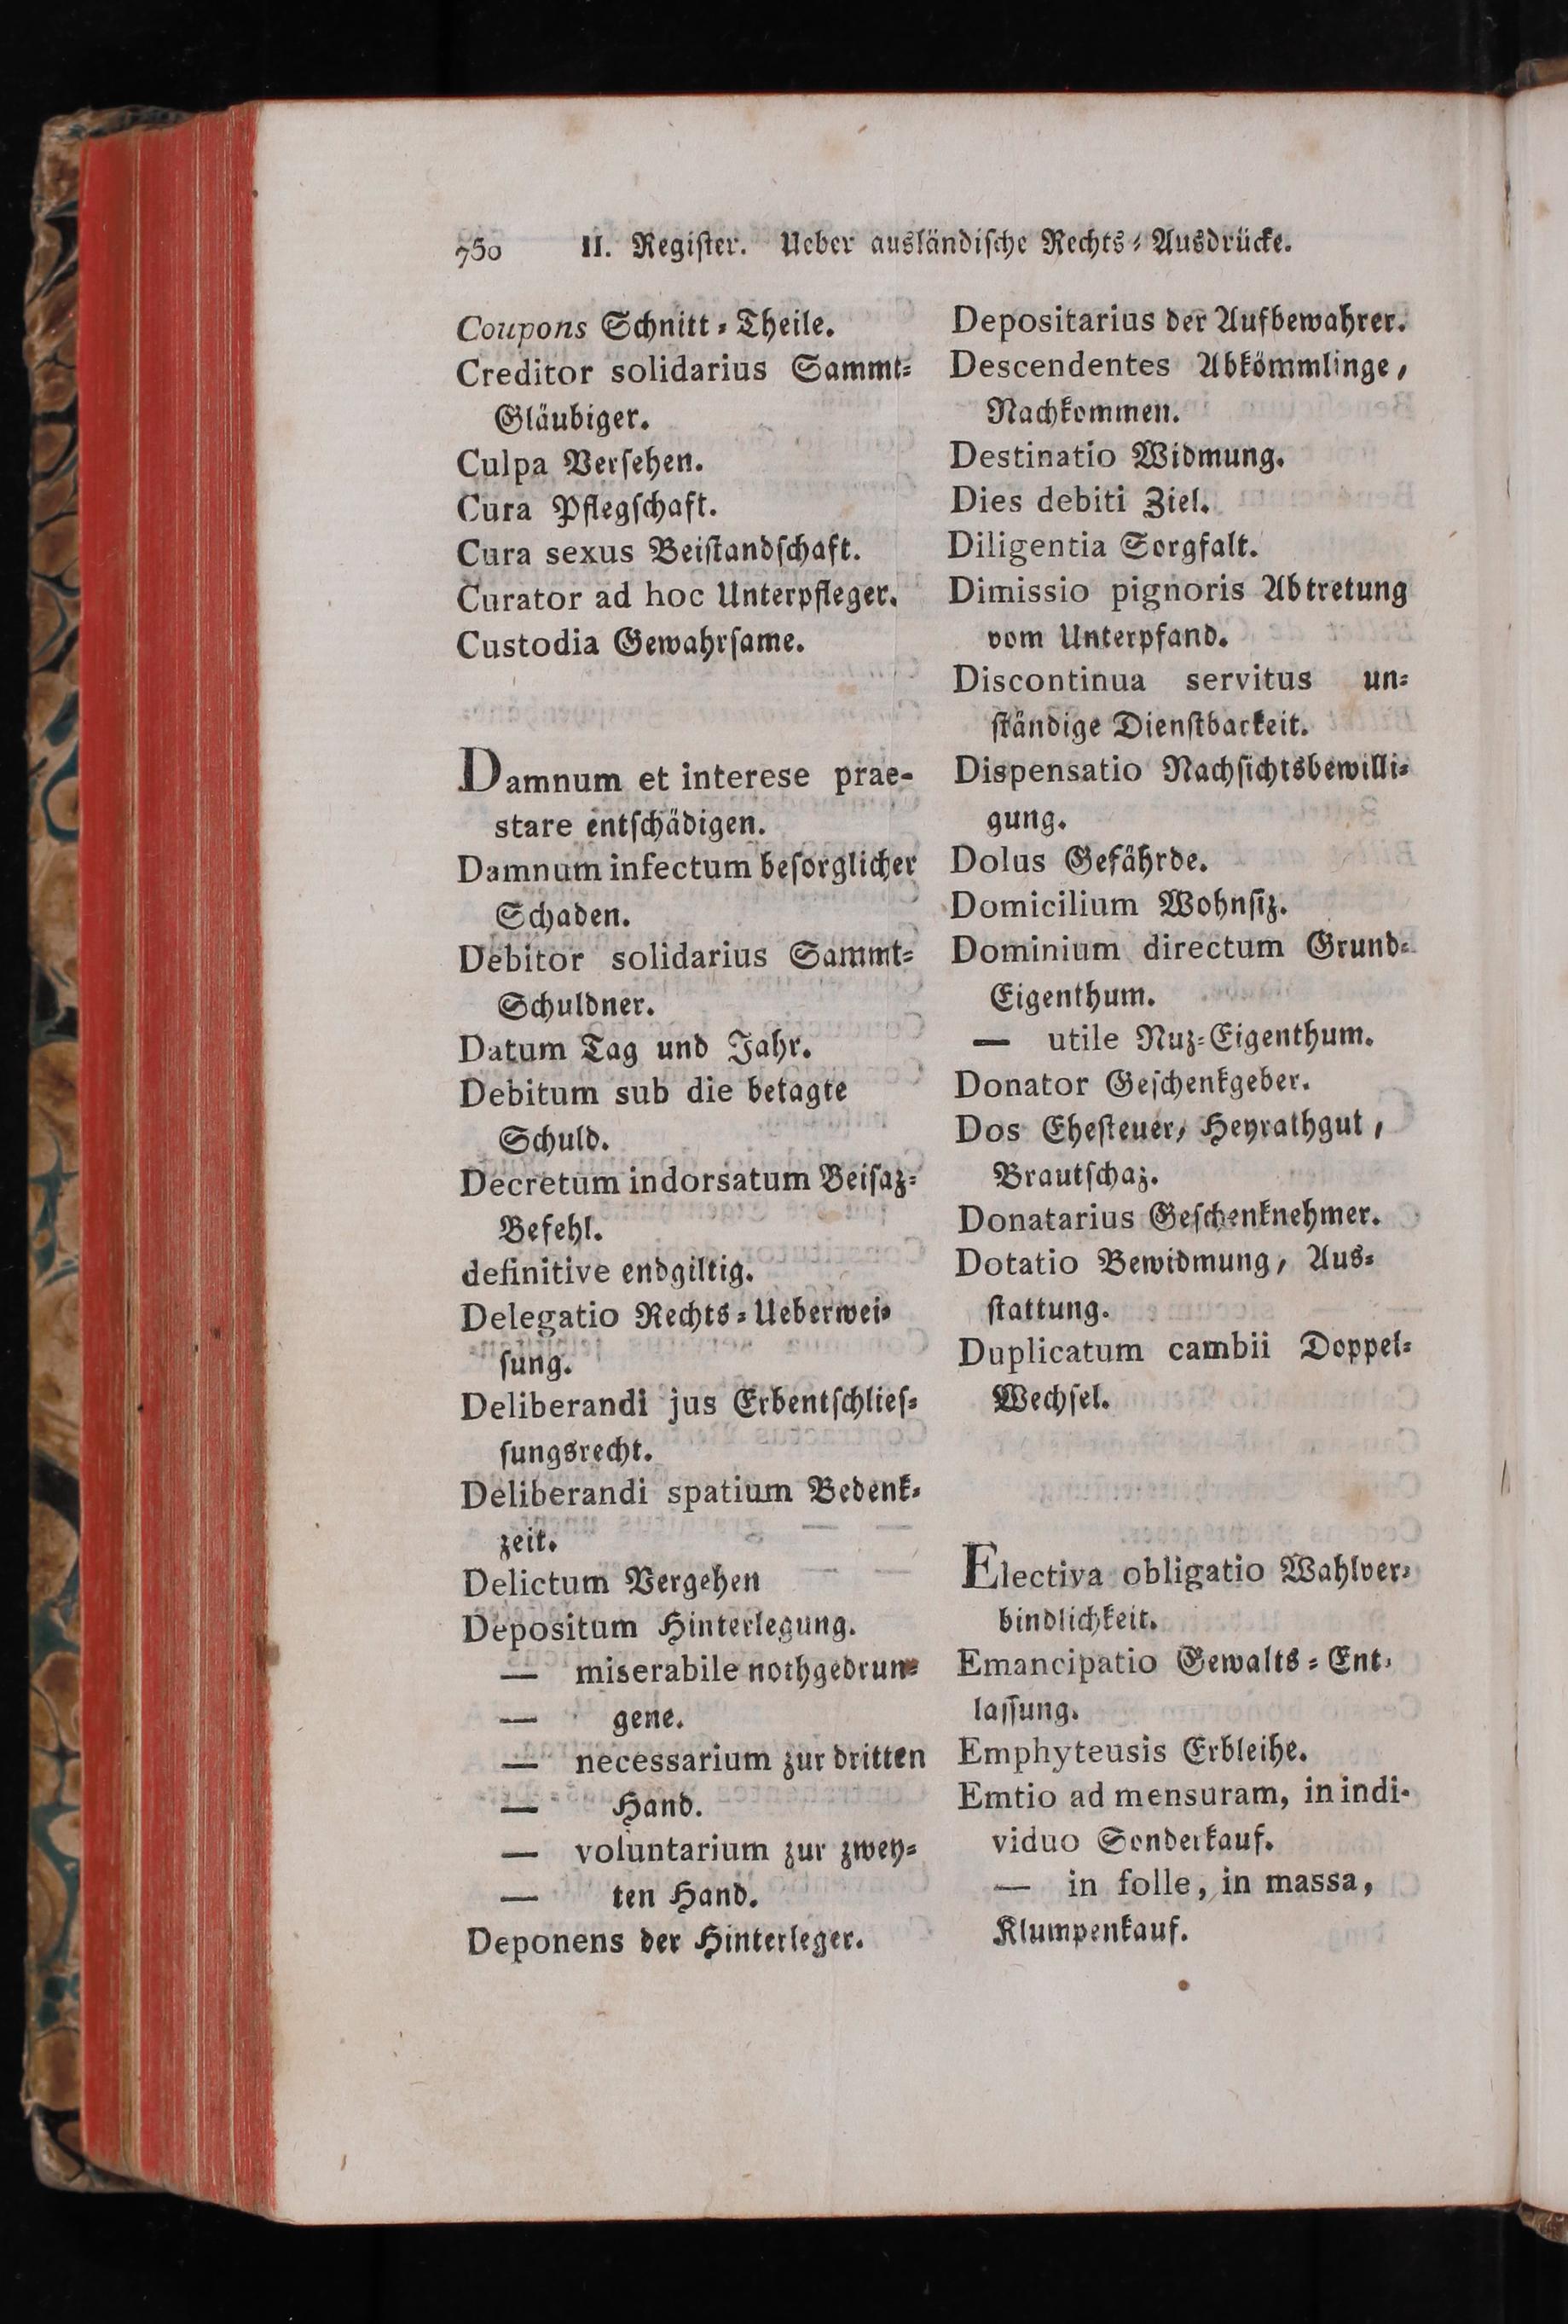 750 II. Register. Ueber ausländische Rechts-Ausdrücke.
Coupons Schnitt-Theile.
Creditor solidarius Sammt-
Gläubiger.
Culpa Versehen.
Cura Pflegschaft.
Cura sexus Beistandschaft.
Curator ad hoc Unterpfleger.
Custodia Gewahrsame.
Damnum et interese prae-
stare entschädigen.
Damnum infectum besorglicher
Schaden.
Debitor solidarius Sammt-
Schuldner.
Datum Tag und Jahr.
Debitum sub die betagte
Schuld.
Decretum indorsatum Beisaz-
Befehl.
definitive endgiltig.
Delegatio Rechts-Ueberwei-
sung.
Deliberandi jus Erbentschlies-
sungsrecht.
Deliberandi spatium Bedenk-
zeit.
Delictum Vergehen
Depositum Hinterlegung.
— miserabile nothgedrun-
— gene.
— necessarium zur dritten
— Hand.
— voluntarium zur zwey-
— ten Hand.
Deponens der Hinterleger.
Depositarius der Aufbewahrer.
Descendentes Abkömmlinge,
Nachkommen.
Destinatio Widmung.
Dies debiti Ziel.
Diligentia Sorgfalt.
Dimissio pignoris Abtretung
vom Unterpfand.
Discontinua servitus un-
ständige Dienstbarkeit.
Dispensatio Nachsichtsbewilli-
gung.
Dolus Gefährde.
Domicilium Wohnsiz.
Dominium directum Grund-
Eigenthum.
— utile Nuz-Eigenthum.
Donator Geschenkgeber.
Dos Ehesteuer, Heyrathgut,
Brautschaz.
Donatarius Geschenknehmer.
Dotatio Bewidmung, Aus-
stattung.
Duplicatum cambii Doppel-
Wechsel.
Electiva obligatio Wahlver-
bindlichkeit.
Emancipatio Gewalts-Ent-
lassung.
Emphyteusis Erbleihe.
Emtio ad mensuram, in indi-
viduo Sonderkauf.
— in folle, in massa,
Klumpenkauf.